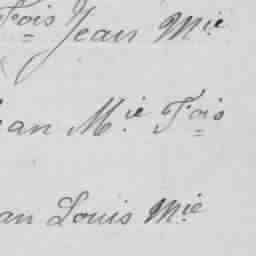 Fois Jean Mie
ean Mie Fois
an Louis Mie